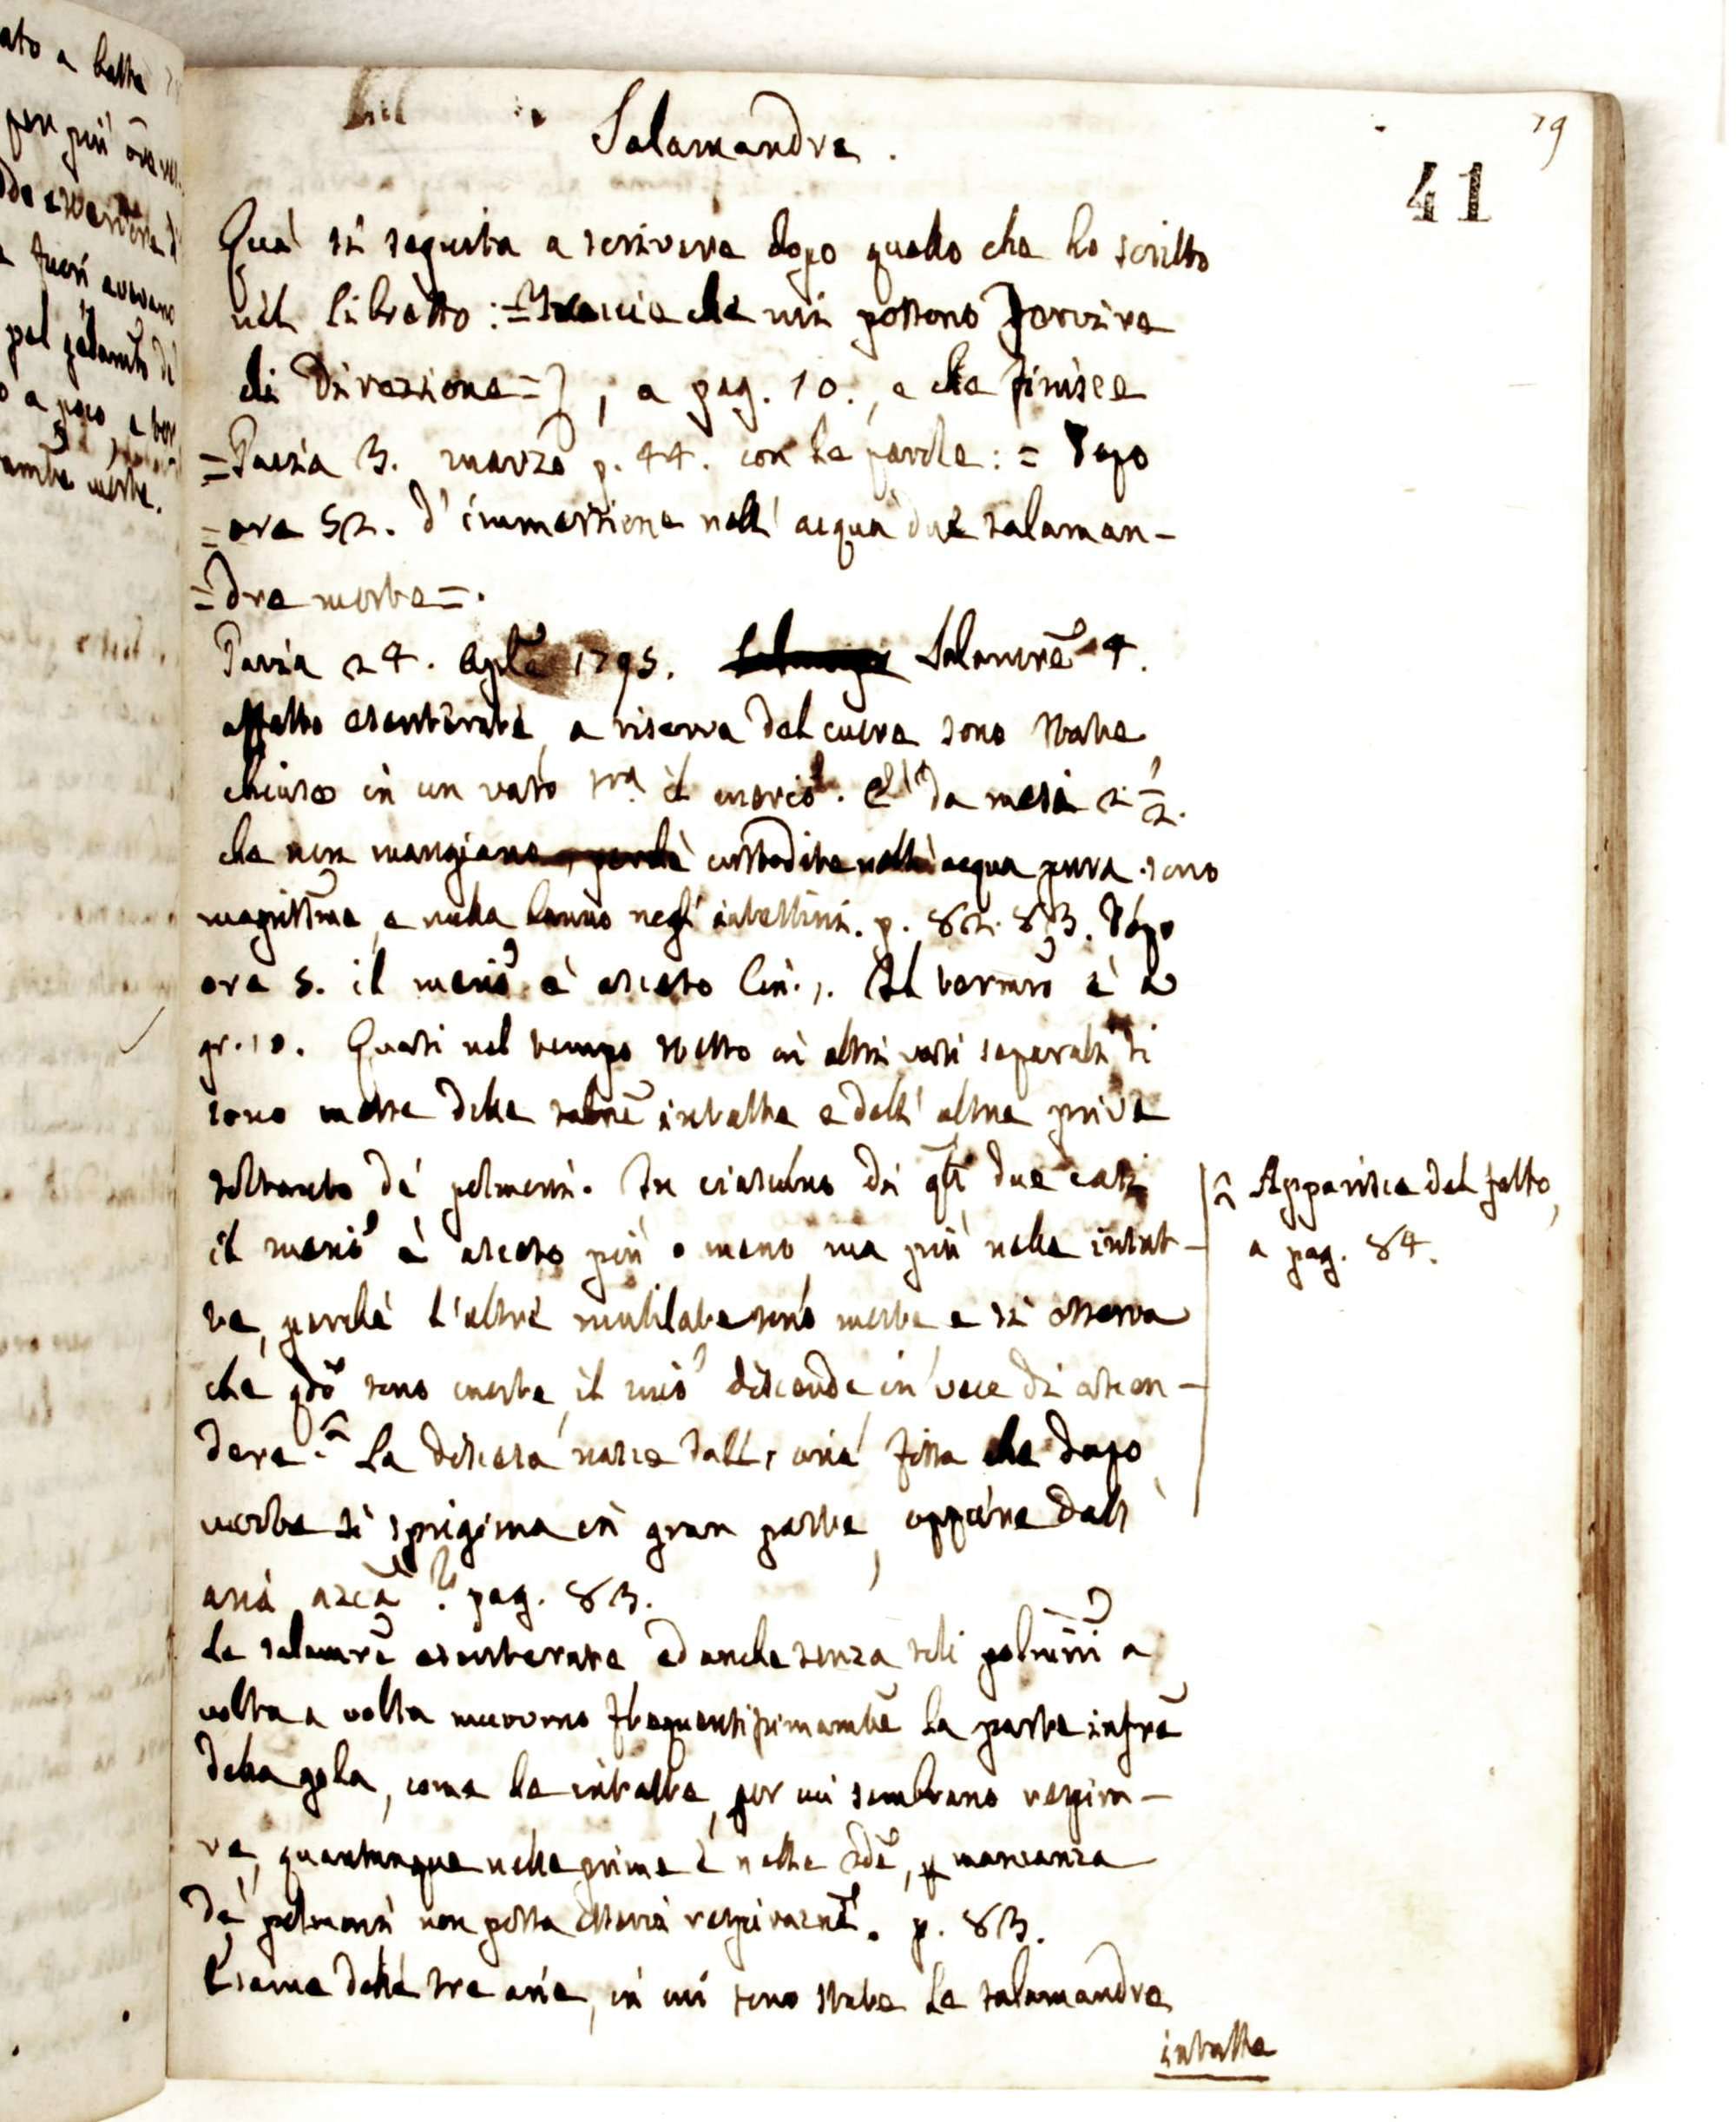 79
41
Salamandre.
Quà si seguita a scrivere dopo quello che ho scritto
nel libretto : = Traccie che mi possono servire
di Direzione = , a pag. 10., e che finisce
= Pavia 3. marzo p. 44. con le parole : = Dopo
= ore 52. d'immersione nell' acqua due salaman-
= dre morte = .
Pavia 24. Aple 1795. Salamre 4.
affatto esenterate, a riserva del cuore sono state
chiuse in un vaso sra il mercio. E' da mesi 2 1/2.
che non mangiano, perchè custodite nell' acqua pura. sono
magrissime, e nulla hanno negl' intestini. p. 82. 83. Dopo
ore 5. il merio è asceso lin. 1. Il termro è a
gr. 10. Quasi nel tempo stesso in altri vasi separati si
sono messe delle salmre intatte e dell' altre prive
soltanto de' polmoni. In ciascuno di qti due casi
il merio è asceso più o meno, ma più nelle intat-
te, perchè l'altre mutilate sono morte e si osserva
che qdo sono morte, il mrio discende in vece di ascen-
dere. La discesa nasce dall' aria fissa che dopo
morte si sprigiona in gran parte, oppure dall'
aria azca? pag. 83.
Le salamre esenterate ed anche senza soli polmoni a
volta a volta muovono frequentissimamte la parte infre
della gola, come le intatte, per cui sembrano respira-
re, quantunque nelle prime e nelle 2de, p mancanza
de' polmoni non possa esservi respirazne. p. 83.
Esame delle tre arie, in cui sono state le salamandre
intatte
Apparisce dal fatto,
a pag. 84.